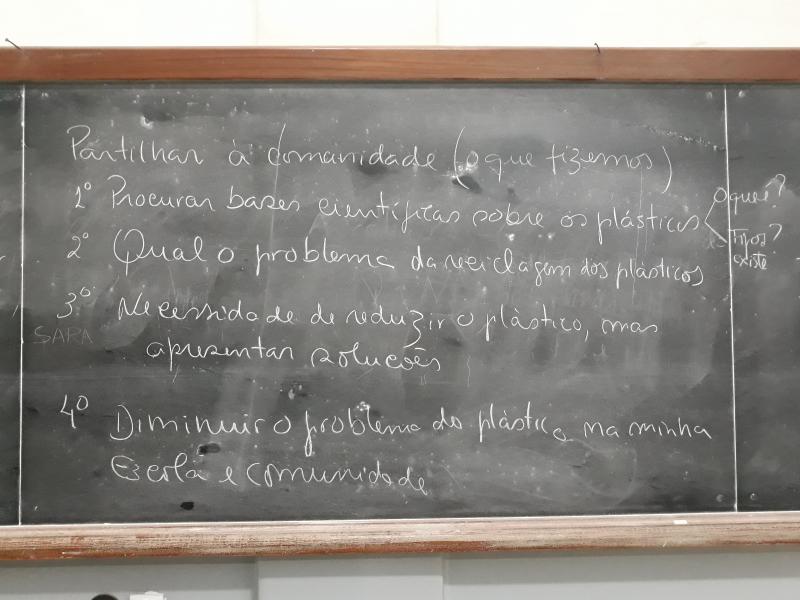 Partilhar à comunidade (o que fizemos)
1º Procurar bases científicas sobre os plásticos
O que é?
Tipos?
existe
2º Qual o problema da reciclagem dos plásticos
3º Necessidade de reduzir o plástico, mas
SARA
apresentar soluções
4º Diminuir o problema do plástico na minha
Escola e comunidade